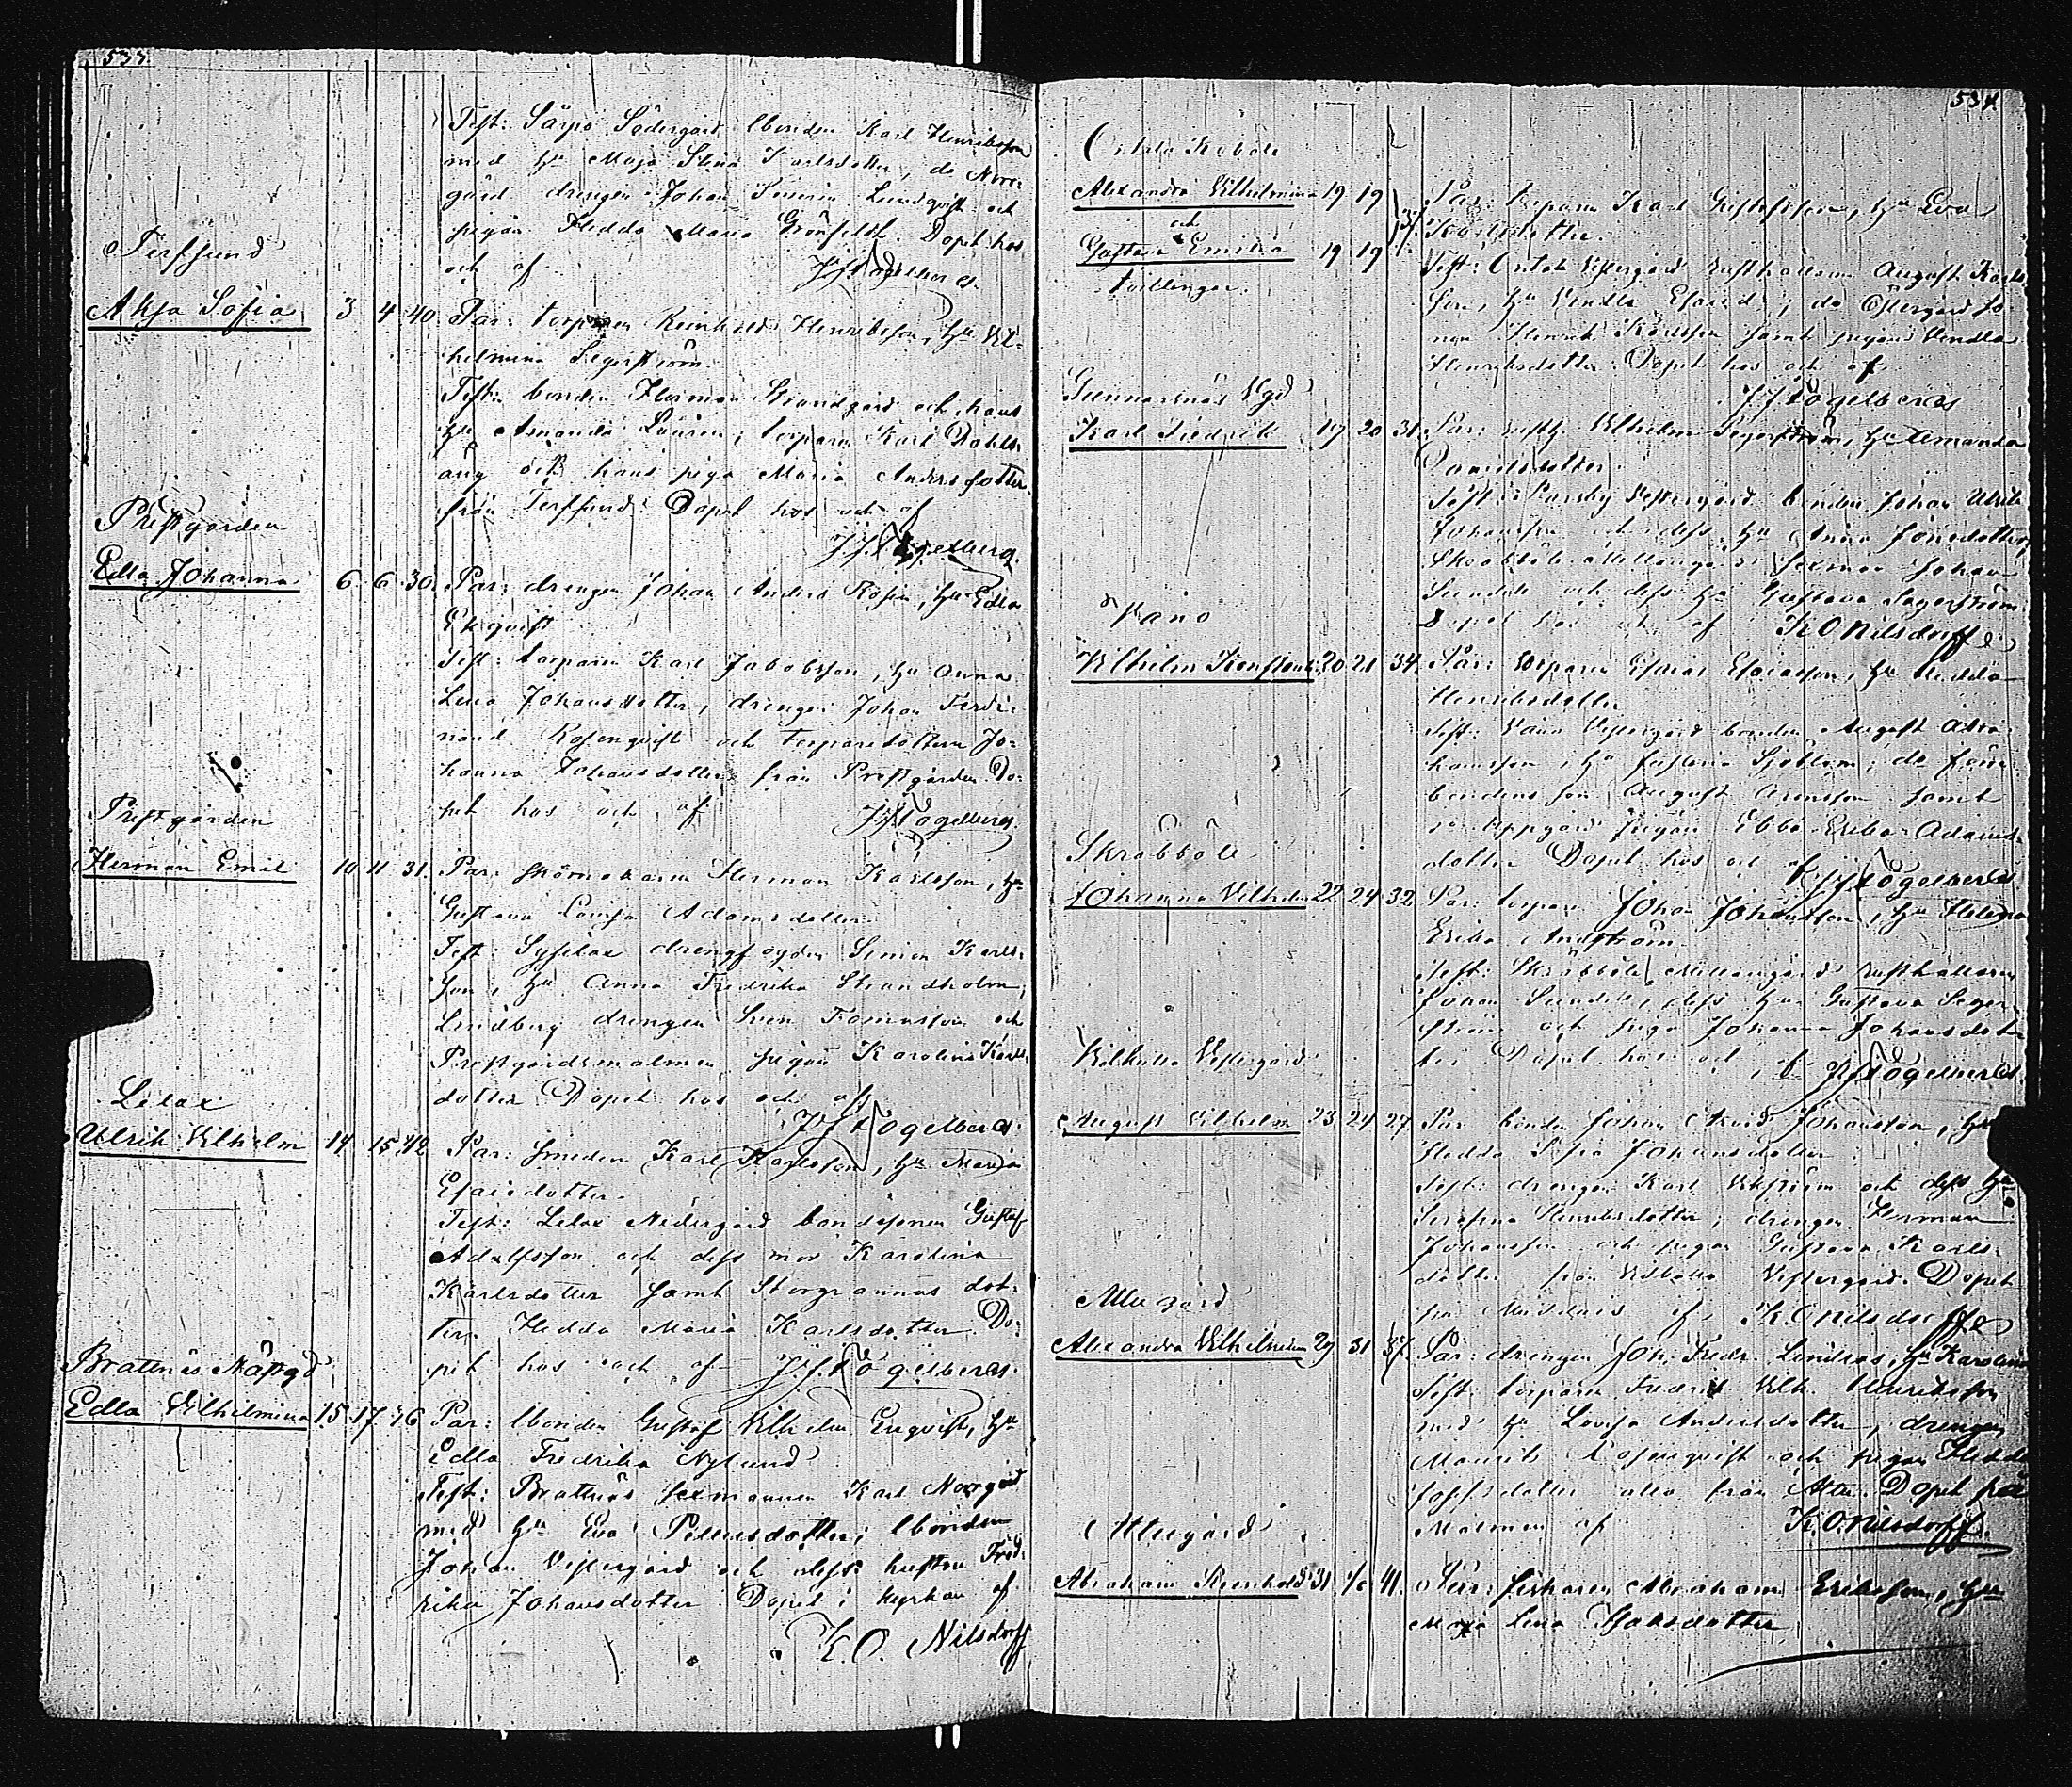 533.
Test: Särpö Södergård lbonden Karl Henriksson
med hu Maja Stina Karlsdotter, do Norr-
gård drengen Johan Lundqvist och
pigan Hedda Maria Grönfeldt. Döpet hos
och af J J Fogelberg.
Terfsund
Alxa Sofia 3 4 40. Par: torparen Reinhold Henriksson, hu Vil-
helmina Segerström.
Test: bonden Herman Strandgård och hans
hu Amanda Lourén; torparen Karl Dahls-
äng och hans piga Maria Andersdotter
från Terfsund. Döpet hos och af
J. J. Fogelberg.
Prestgården
Edla Johanna 6 6 30. Par: drengen Johan Anders Rosin, hu Edla
Ekqvist
Test: torparen Karl Jakobsson, hu Anna
Lena Johansdotter, drengen Johan Ferdi-
nand Rosenqvist och torparedottern Jo-
hanna Johansdotter från Prestgården. Dö-
pet hos och af J J Fogelberg
Prestgården
Herman Emil 10 11 31. Par: skörnakaren Herman Karlsson, hu
Gustava Lovisa Adamsdotter
Test: Syselax drengfogden Simon Karls-
son, hu Anna Fredrika Strandholm,
Lindberg drengen Sven Tomasson och
Prestgårdsmalmen pigan Karolina Karls-
dotter Döpet hos och af
J J Fogelberg
Lelax
Ulrik Vilhelm 14 15 42 Par: smeden Karl Karlsson, hu Maria
Esaisdotter
Test: Lelax Nedergård bondesonen Gustaf
Adolfsson och dess mor Karolina
Karlsdotter samt Storgrannas dot-
ter Hedda Maria Karlsdotter. Dö-
pet hos och af J. J. Fogelberg.
Brattnäs Näsgd
Edla Vilhelmina 15 17 46 Par: lbonden Gustaf Vilhelm Enqvist, hu
Edla Fredrika Nylund
Test: Brattnäs sexmannen Karl Norrgård
med hu Eva Pettersdotter; lbonden
Johan Vestergård och dess hustru Fred-
rika Johansdotter. Döpet i kyrkan af
K. O. Nilsdorff
534.
Ontala Koböle
Alexandra Vilhelmina 19 19 37. Par: torparen Karl Gustafsson, hu Eva
och Karlsdotter.
Gustava Emilia 19 19 Test: Ontala Vestergård rusthållaren August Karls-
tvillingar. son, hu Vendla Esaisd; do Östergård so-
nen Henrik Karlsson samt pigan Vendla
Henriksdotter. Döpet hos och af
J J Fogelberg
Gunnarsnäs Vgd
Karl Fredrik 19 20 31. Par: rusth Vilhelm Segerström, hu Amanda
Danielsdotter.
Test: Parsby Vestergård bonden Johan Ulrik
Johansson och dess hu Anna Jonsdotter,
Skräbböle Mellangård sexman Johan
Sundell och dess hu Gustava Segerström.
Döpet hos och af K O Nilsdorff
Vånö
Vilhelm Konstant. 20 21 34. Par: torparen Esaias Esaiasson, hu Hedda
Henriksdotter
Test: Vånö Vestergård bonden August Abra-
hamsson, hu Justina Sjöblom; do
bondens son August samt
Uppgård pigan Ebba Erika Adams-
dotter Döpet hos och af J J Fogelberg
Skräbböle
Johanna Vilhelm. 22 24 32 Par: torparen Johan Johansson, hu Helena
Erika Andström
Test: Skräbböle Mellangård rusthållaren
Johan Sundell, dess hu Gustava Seger-
ström och piga Johanna Johansdot-
ter Döpet hos och af J J Fogelberg.
Vestergård
August Vilhelm 23 24 27 Par: bonden Johan Arvid Johansson, hu
Hedda Sofia Johansdotter
Test: drengen Karl Vikström och dess hu
Serafina Henriksdotter; drengen Herman
Johansson och pigan Gustava Karls-
dotter från Vestergård. Döpet
på af K. O. Nilsdorff
Attugård
Alexandra Vilhelmina 29 31 37. Par: drengen Joh. Fredr. Lindroos, hu Karolina
Test: torparen Fredrik Vilh. Henriksson
med hu Lovisa Andersdotter, drengen
Maurits Rosenqvist och pigan Hedda
Josefsdotter alla från Attu. Döpet på
Malmen af K. O. Nilsdorff.
Attugård
Abraham Reinhold 31 1/6 41. Par: fiskaren Abraham Eriksson, hu
Maja Lena Isaksdotter